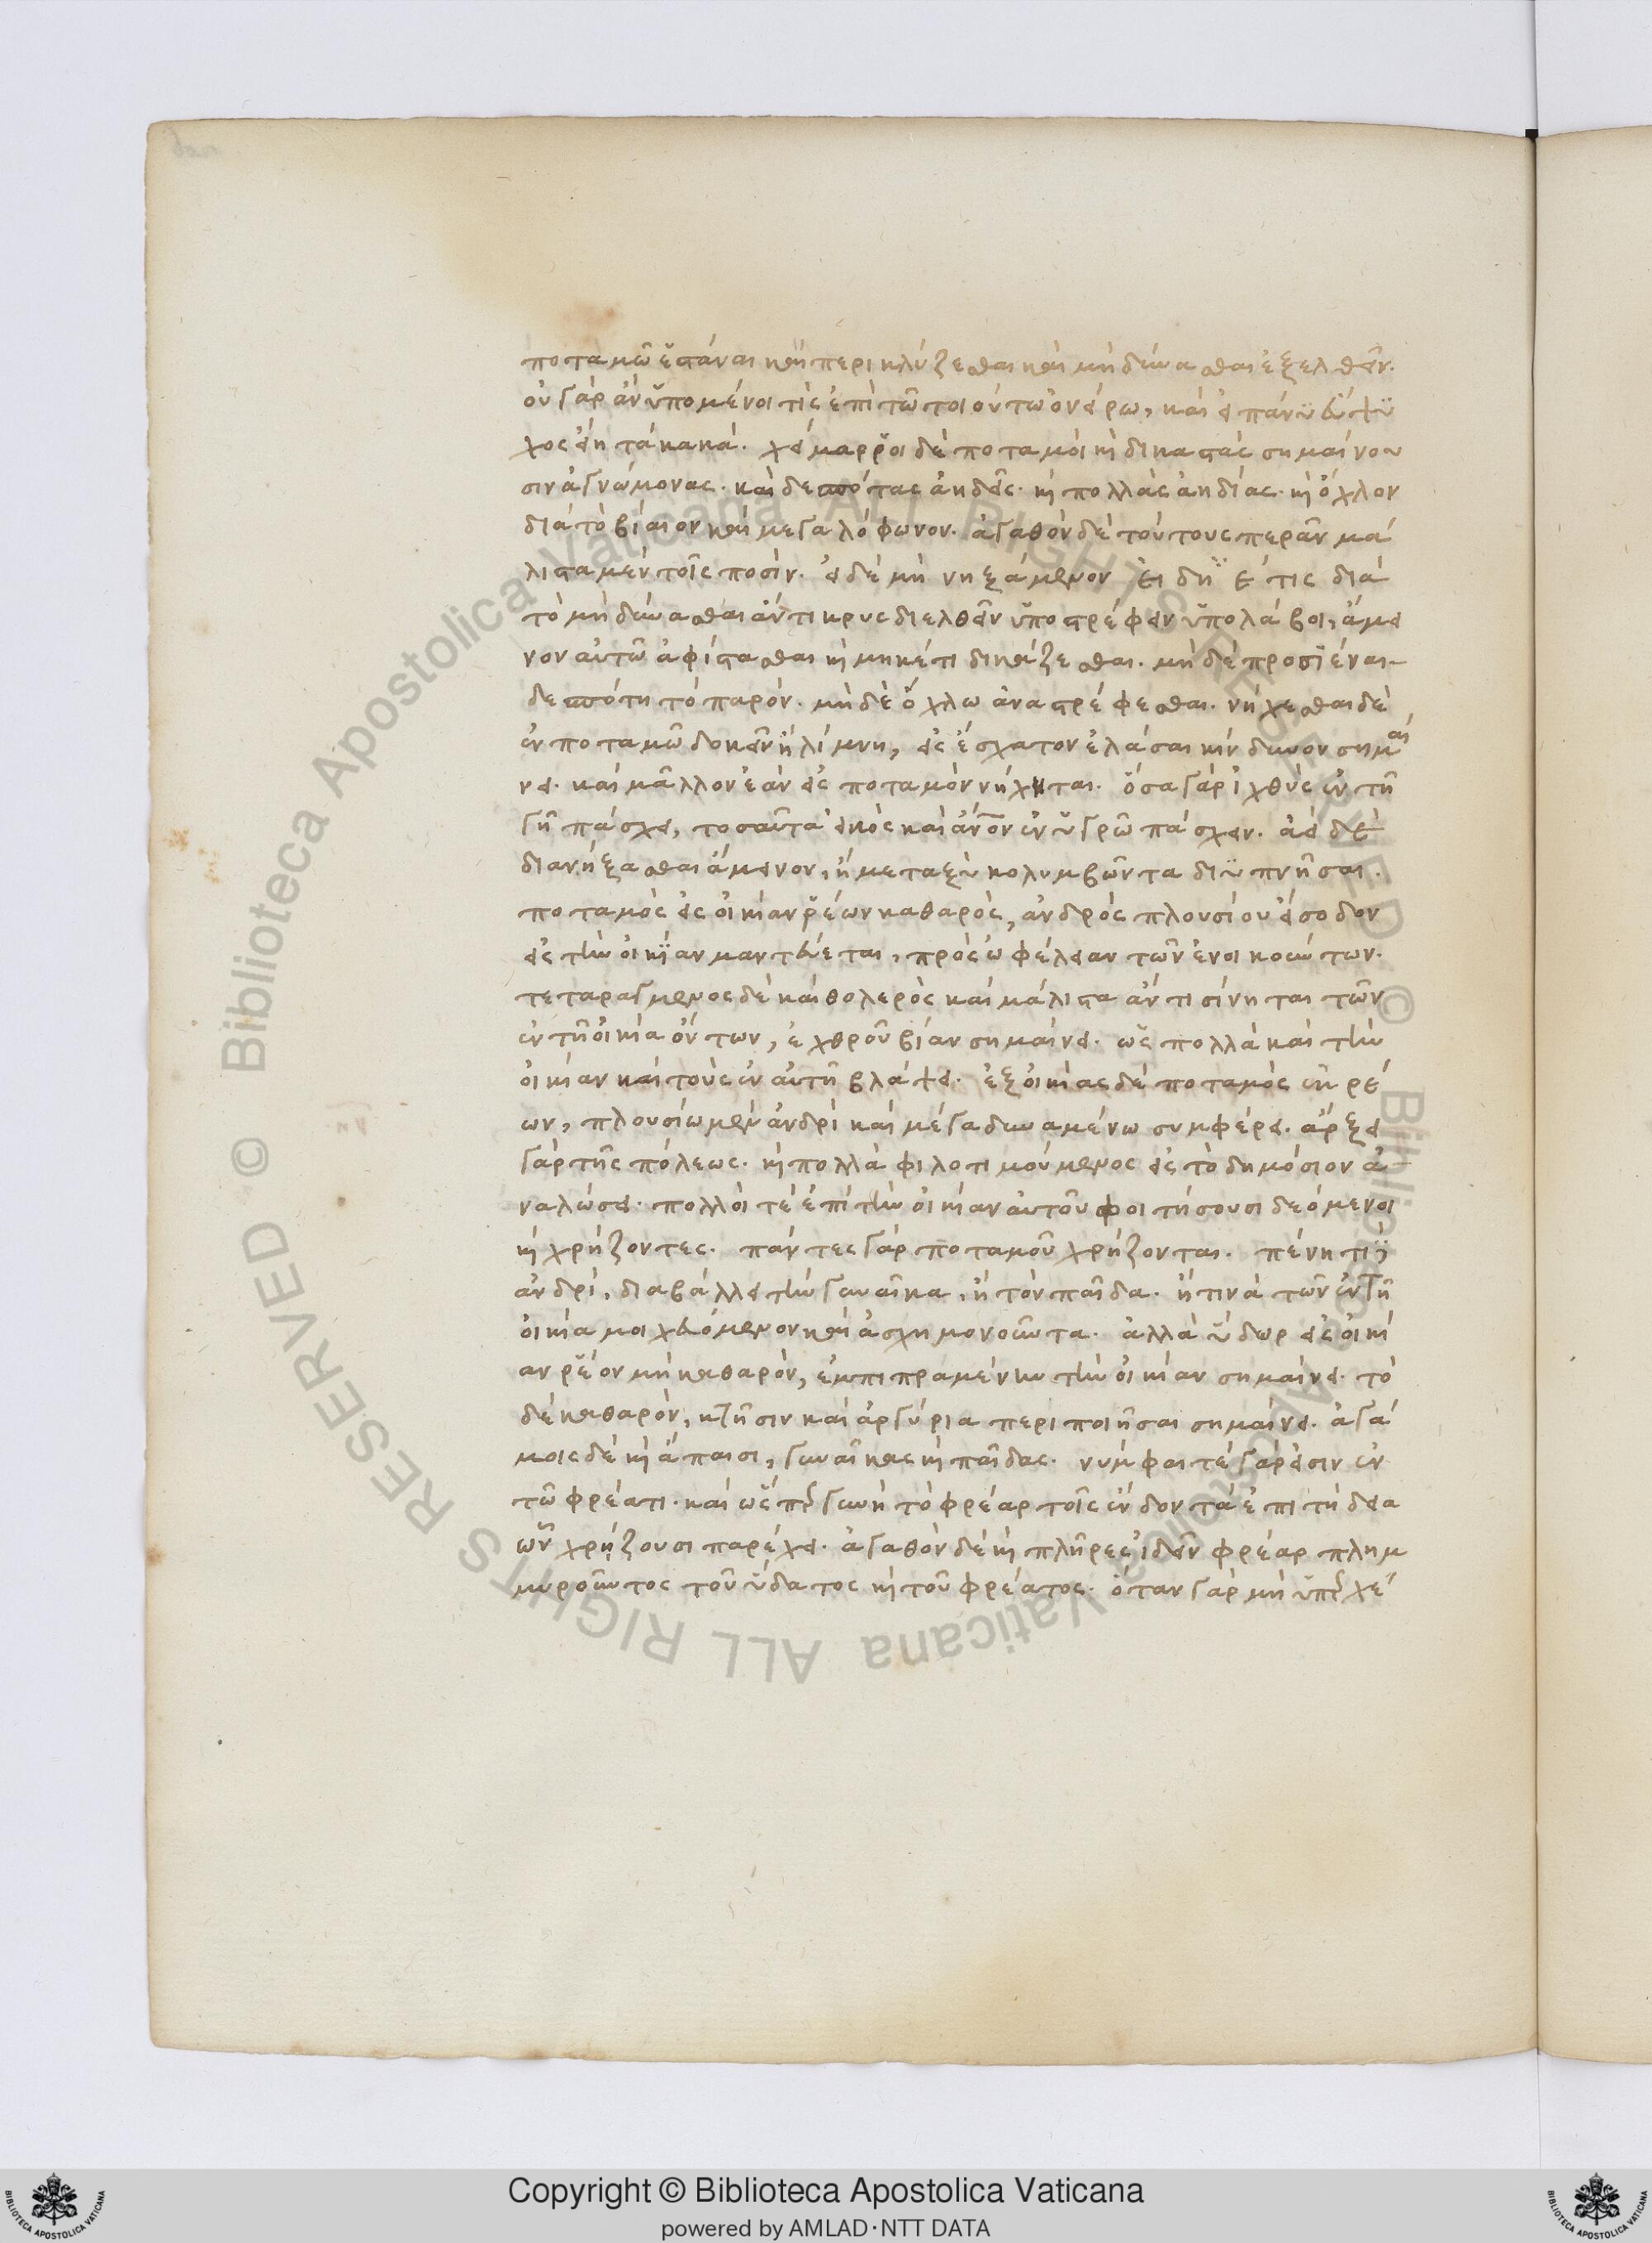 ποταμῶ ἑστάναι καὶ περικλύζεσθαι καὶ μὴ δύνασθαι ἐξελθεῖν.
οὐ γὰρ ἂν ὑπομένοι τὶς ἐπὶ τῶ τοιούτω ὀνείρω, καὶ εἰ πάνυ εὔψυ
χος εἴη τὰ κακά. χείμαρροι δὲ ποταμοὶ κὶ δικαστὰς σημαίνου
σιν ἀγνώμονας. καὶ δεσπότας ἀηδεῖς. κὶ πολλὰς ἀηδίας. κὶ ὄχλον
διὰ τὸ βίαιον καὶ μεγαλόφωνον. ἀγαθὸν δὲ τούτους περᾶν μά
λιστα μὲν τοῖς ποσίν. εἰ δὲ μὴ νηξάμενον διὰ
τὸ μὴ δύνασθαι ἄντικρυς διελθεῖν ὑποστρέφειν ὑπολάβοι, ἄμει
νον αὐτῶ ἀφίστασθαι κὶ μηκέτι δικάζεσθαι. μὴ δὲ προσϊέναι
δεσπότη τὸ παρόν. μὴ δὲ ὄχλω ἀναστρέφεσθαι. νήχεσθαι δὲ
ἐν ποταμῶ δοκεῖν ἢ λίμνη, εἰς ἔσχατον ἐλάσαι κίνδυνον σημαί
νει. καὶ μᾶλλον ἐὰν εἰς ποταμὸν νήχηται. ὅσα γὰρ ἰχθὺς ἐν τῆ
γῆ πάσχει, τοσαῦτα εἰκὸς καὶ ἄνον ἐν ὑγρῶ πάσχειν. ἀεὶ δὲ
διανήξασθαι ἄμεινον, ἢ μεταξὺ κολυμβῶντα διϋπνῆσαι.
ποταμὸς εἰς οἰκίαν ῥέων καθαρὸς, ἀνδρὸς πλουσίου εἴσοδον
εἰς τὴν οἰκίαν μαντεύεται, πρὸς ὠφέλειαν τῶν ἐνοικούντων.
τεταραγμένος δὲ καὶ θολερὸς καὶ μάλιστα ἄν τι σίνηται τῶν
ἐν τῆ οἰκία ὄντων, ἐχθροῦ βίαν σημαίνει. ὡς πολλὰ καὶ τὴν
οἰκίαν καὶ τοὺς ἐν αὐτῆ βλάψει. ἐξ οἰκίας δὲ ποταμὸς ἐκ ρέ
ων, πλουσίω μὲν ἀνδρὶ καὶ μέγα δυναμένω συμφέρει. ἄρξει
γὰρ τῆς πόλεως. κὶ πολλὰ φιλοτιμούμενος εἰς τὸ δημόσιον ἀ
ναλώσει. πολλοὶ τὲ ἐπὶ τὴν οἰκίαν αὐτοῦ φοιτήσουσι δεόμενοι
κὶ χρήζοντες. πάντες γὰρ ποταμοῦ χρήζονται. πένητι
ἀνδρὶ, διαβάλλει τὴν γυναῖκα, ἢ τὸν παῖδα. ἤ τινα τῶν ἐν τῆ
οἰκία μοιχευόμενον καὶ ἀσχημονοῦντα. ἀλλὰ ὕδωρ εἰς οἰκί
αν ῥέον μὴ καθαρὸν, ἐμπιπραμένην τὴν οἰκίαν σημαίνει. τὸ
δὲ καθαρὸν, κτῆσιν καὶ ἀργύρια περιποιῆσαι σημαίνει. ἀγά
μοις δὲ κὶ ἄπαισι, γυναῖκας κὶ παῖδας. νύμφαι τὲ γάρ εἰσιν ἐν
τῶ φρέατι. καὶ ὥσπερ γυνὴ τὸ φρέαρ τοῖς ἔνδον τὰ ἐπιτήδεια
ὧν χρήζουσι παρέχει. ἀγαθὸν δὲ κὶ πλῆρες ἰδεῖν φρέαρ πλημ
μυροῦντος τοῦ ὕδατος κὶ τοῦ φρέατος. ὅταν γὰρ μὴ ὑπερχέ